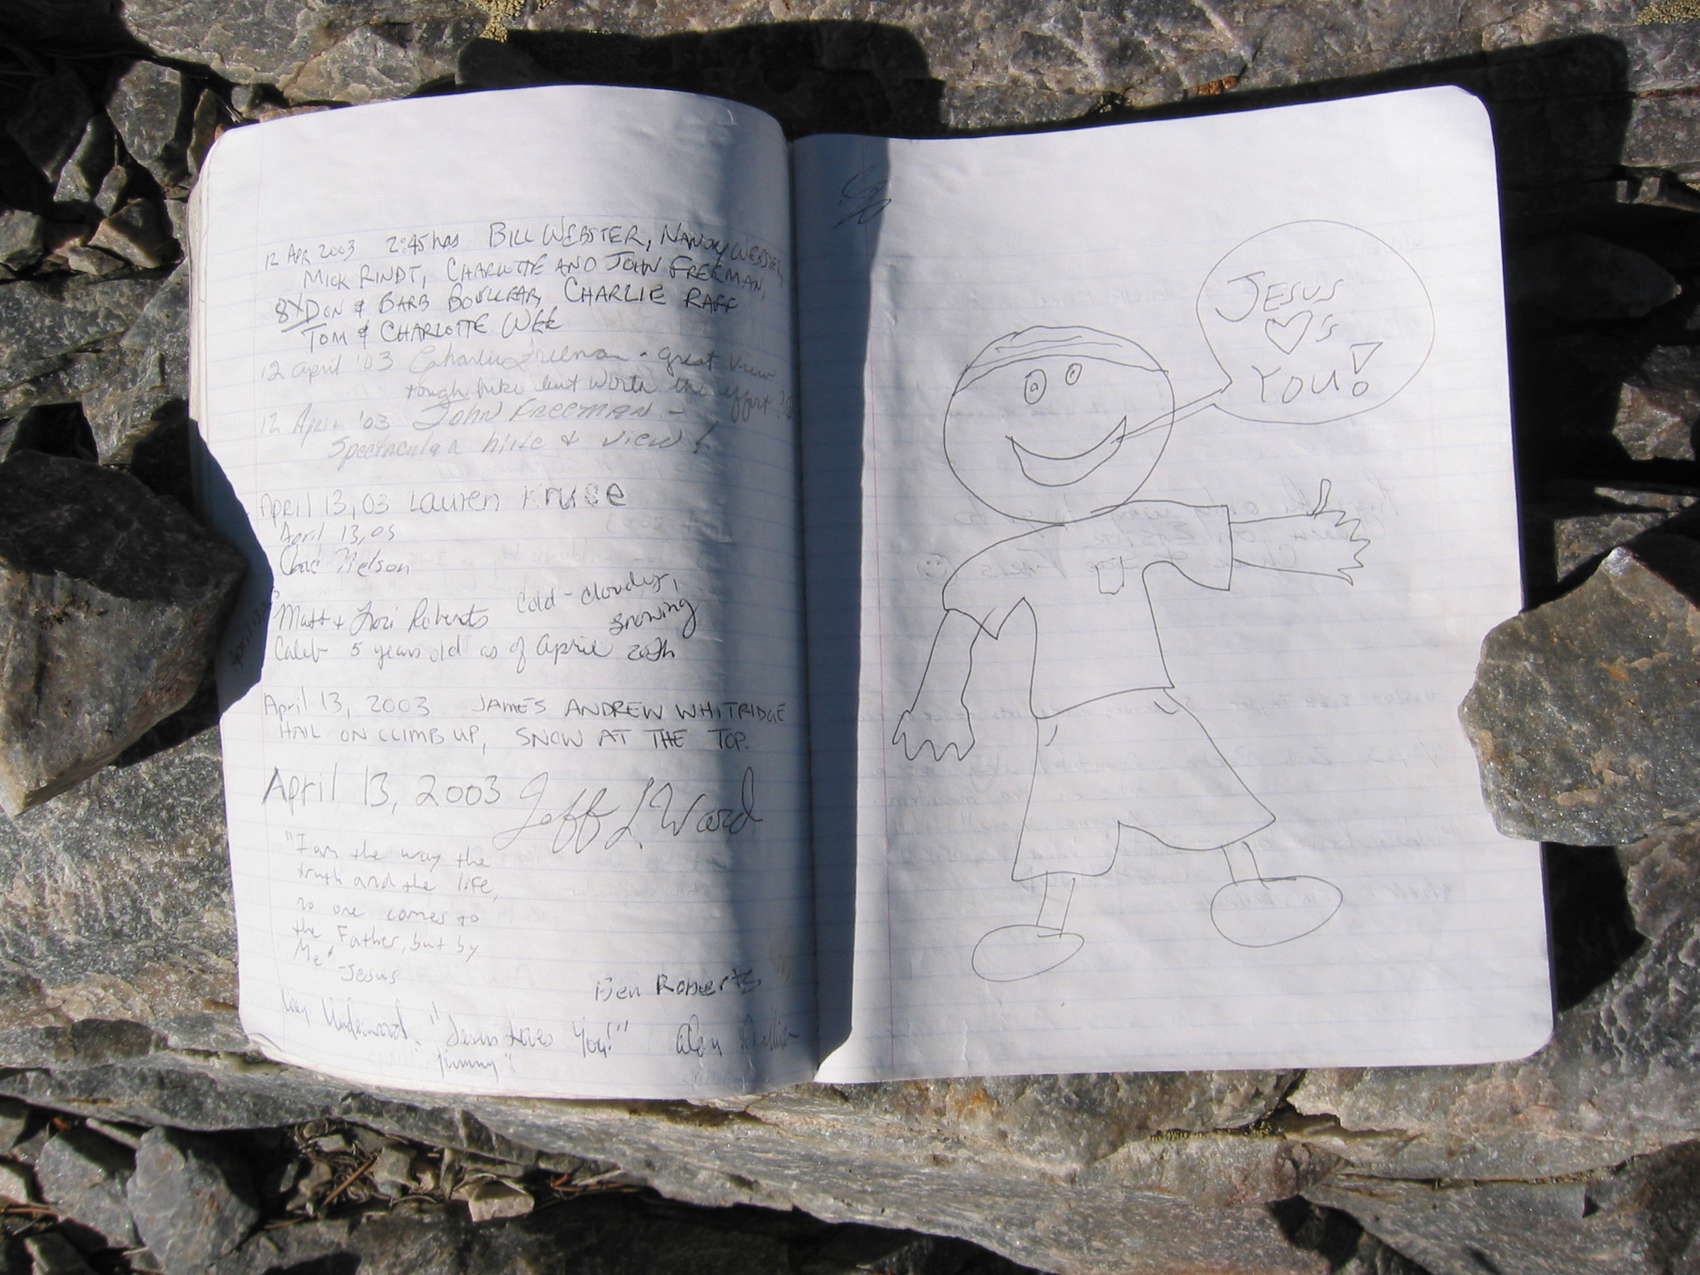 12 APR 2003 2:45 hrs BILL WEBSTER, NANCY WEBSTER,
MICK RINDT, CHARLOTTE AND JOHN FREEMAN,
8X DON & BARB CHARLIE RAFF
TOM & CHARLOTTE WEE
12 April '03 Freeman - great view
tough hike but worth the effort
12 April '03 JOHN FREEMAN -
Spectacular hike & view!
April 13, 03 Lauren Kruse
April 13, 03
Nelson
Matt & Lori Roberts Cold - cloudy,
snowing
Caleb 5 years old as of April 20th
April 13, 2003 JAMES ANDREW WHITRIDGE
HAIL ON CLIMB UP, SNOW AT THE TOP.
April 13, 2003 Jeff L Ward
"I am the way the
truth and the life,
no one comes to
the Father, but by
Me"
Jesus
Ben Roberts
Underwood "Jesus loves You!" Alex
JESUS
♡'s
YOU!